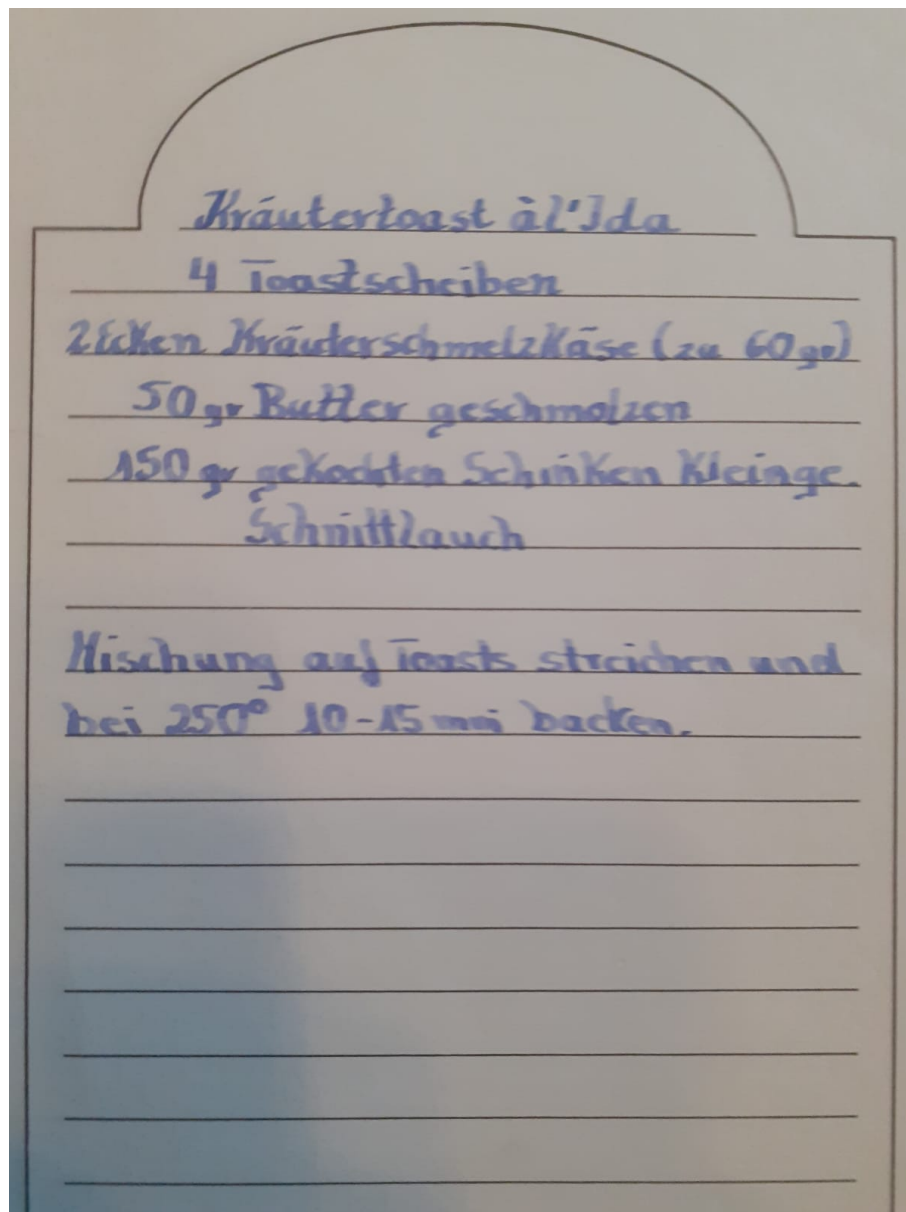 Kräutertoast àl'Ida
4 Toastscheiben
2 Ecken Kräuterschmelzkäse (zu 60 gr)
50 gr Butter geschmolzen
150 gr gekochten Schinken kleinge.
Schnittlauch
Mischung auf Toasts streichen und
bei 250° 10-15 min backen.